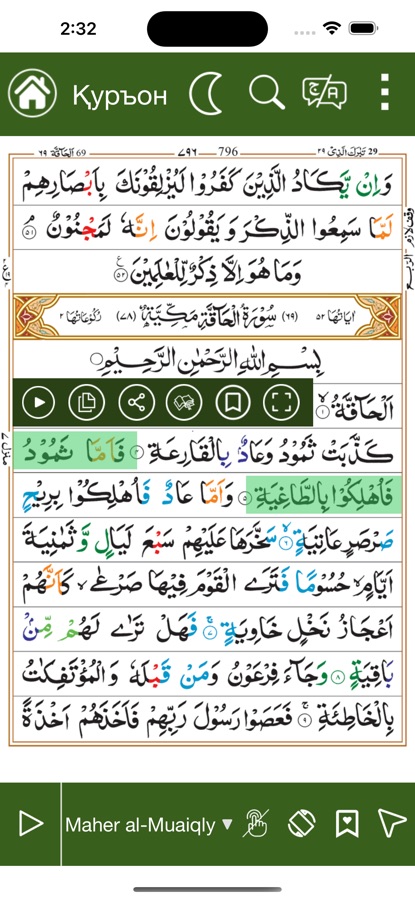 2:32
Қуръон
69 اَلْحَآقَّة ٦٩ ٧٩٦ — 796 تَبٰرَكَ الَّذِىْ ٢٩ 29
وَاِنْ يَّكَادُ الَّذِيْنَ كَفَرُوْا لَيُزْلِقُوْنَكَ بِاَبْصَارِهِمْ
لَمَّا سَمِعُوا الذِّكْرَ وَيَقُوْلُوْنَ اِنَّهٗ لَمَجْنُوْنٌ ۘ ٥١
وَمَا هُوَ اِلَّا ذِكْرٌ لِّلْعٰلَمِيْنَ ٥٢
اٰيَاتُهَا ٥٢ (٦٩) سُوْرَةُ الْحَآقَّةِ مَكِّيَّةٌ (٧٨) رُكُوْعَاتُهَا ٢
بِسْمِ اللهِ الرَّحْمٰنِ الرَّحِيْمِ
اَلْحَآقَّةُ ۙ ١
كَذَّبَتْ ثَمُوْدُ وَعَادٌۢ بِالْقَارِعَةِ ٤ فَاَمَّا ثَمُوْدُ
فَاُهْلِكُوْا بِالطَّاغِيَةِ ٥ وَاَمَّا عَادٌ فَاُهْلِكُوْا بِرِيْحٍ
صَرْصَرٍ عَاتِيَةٍ ۙ ٦ سَخَّرَهَا عَلَيْهِمْ سَبْعَ لَيَالٍ وَّثَمٰنِيَةَ
اَيَّامٍ ۙ حُسُوْمًا فَتَرَى الْقَوْمَ فِيْهَا صَرْعٰى ۙ كَاَنَّهُمْ
اَعْجَازُ نَخْلٍ خَاوِيَةٍ ۚ ٧ فَهَلْ تَرٰى لَهُمْ مِّنْۢ
بَاقِيَةٍ ٨ وَجَآءَ فِرْعَوْنُ وَمَنْ قَبْلَهٗ وَالْمُؤْتَفِكٰتُ
بِالْخَاطِئَةِ ۚ ٩ فَعَصَوْا رَسُوْلَ رَبِّهِمْ فَاَخَذَهُمْ اَخْذَةً
Maher al-Muaiqly ▼